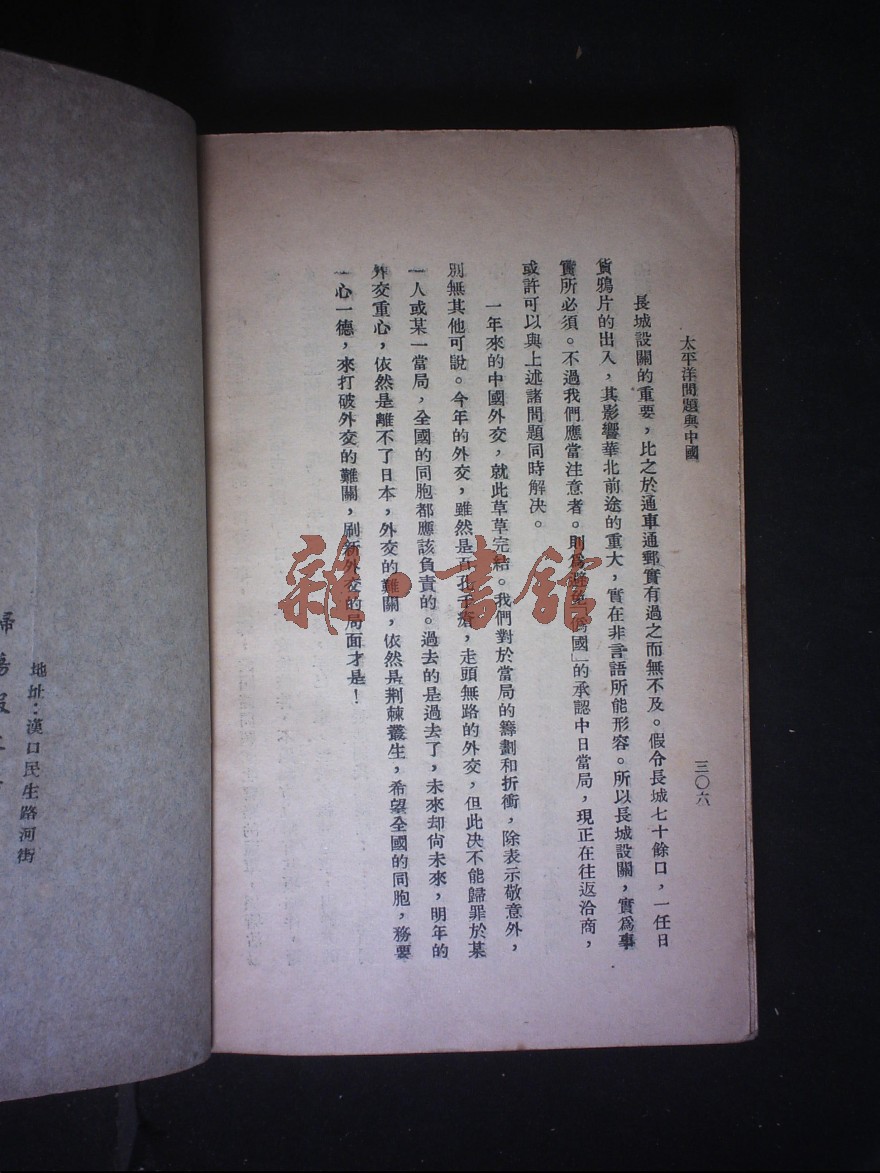 太平洋問題與中國
三〇六
長城設關的重要，比之於通車通郵實有過之而無不及。假令長城七十餘口，一任日
貨鴉片的出入，其影響華北前途的重大，實在非言語所能形容。所以長城設關，實爲事
實所必須。不過我們應當注意者。則爲避免「僞國」的承認中日當局，現正在往返洽商，
或許可以與上述諸問題同時解決。
一年來的中國外交，就此草草完結。我們對於當局的籌劃和折衝，除表示敬意外，
別無其他可說。今年的外交，雖然是百孔千瘡，走頭無路的外交，但此决不能歸罪於某
一人或某一當局，全國的同胞都應該負責的。過去的是過去了，未來却尙未來，明年的
外交重心，依然是離不了日本，外交的難關，依然是荆棘叢生，希望全國的同胞，務要
一心一德，來打破外交的難關，刷新外交的局面才是！
地址：漢口民生路河街
雜·書館